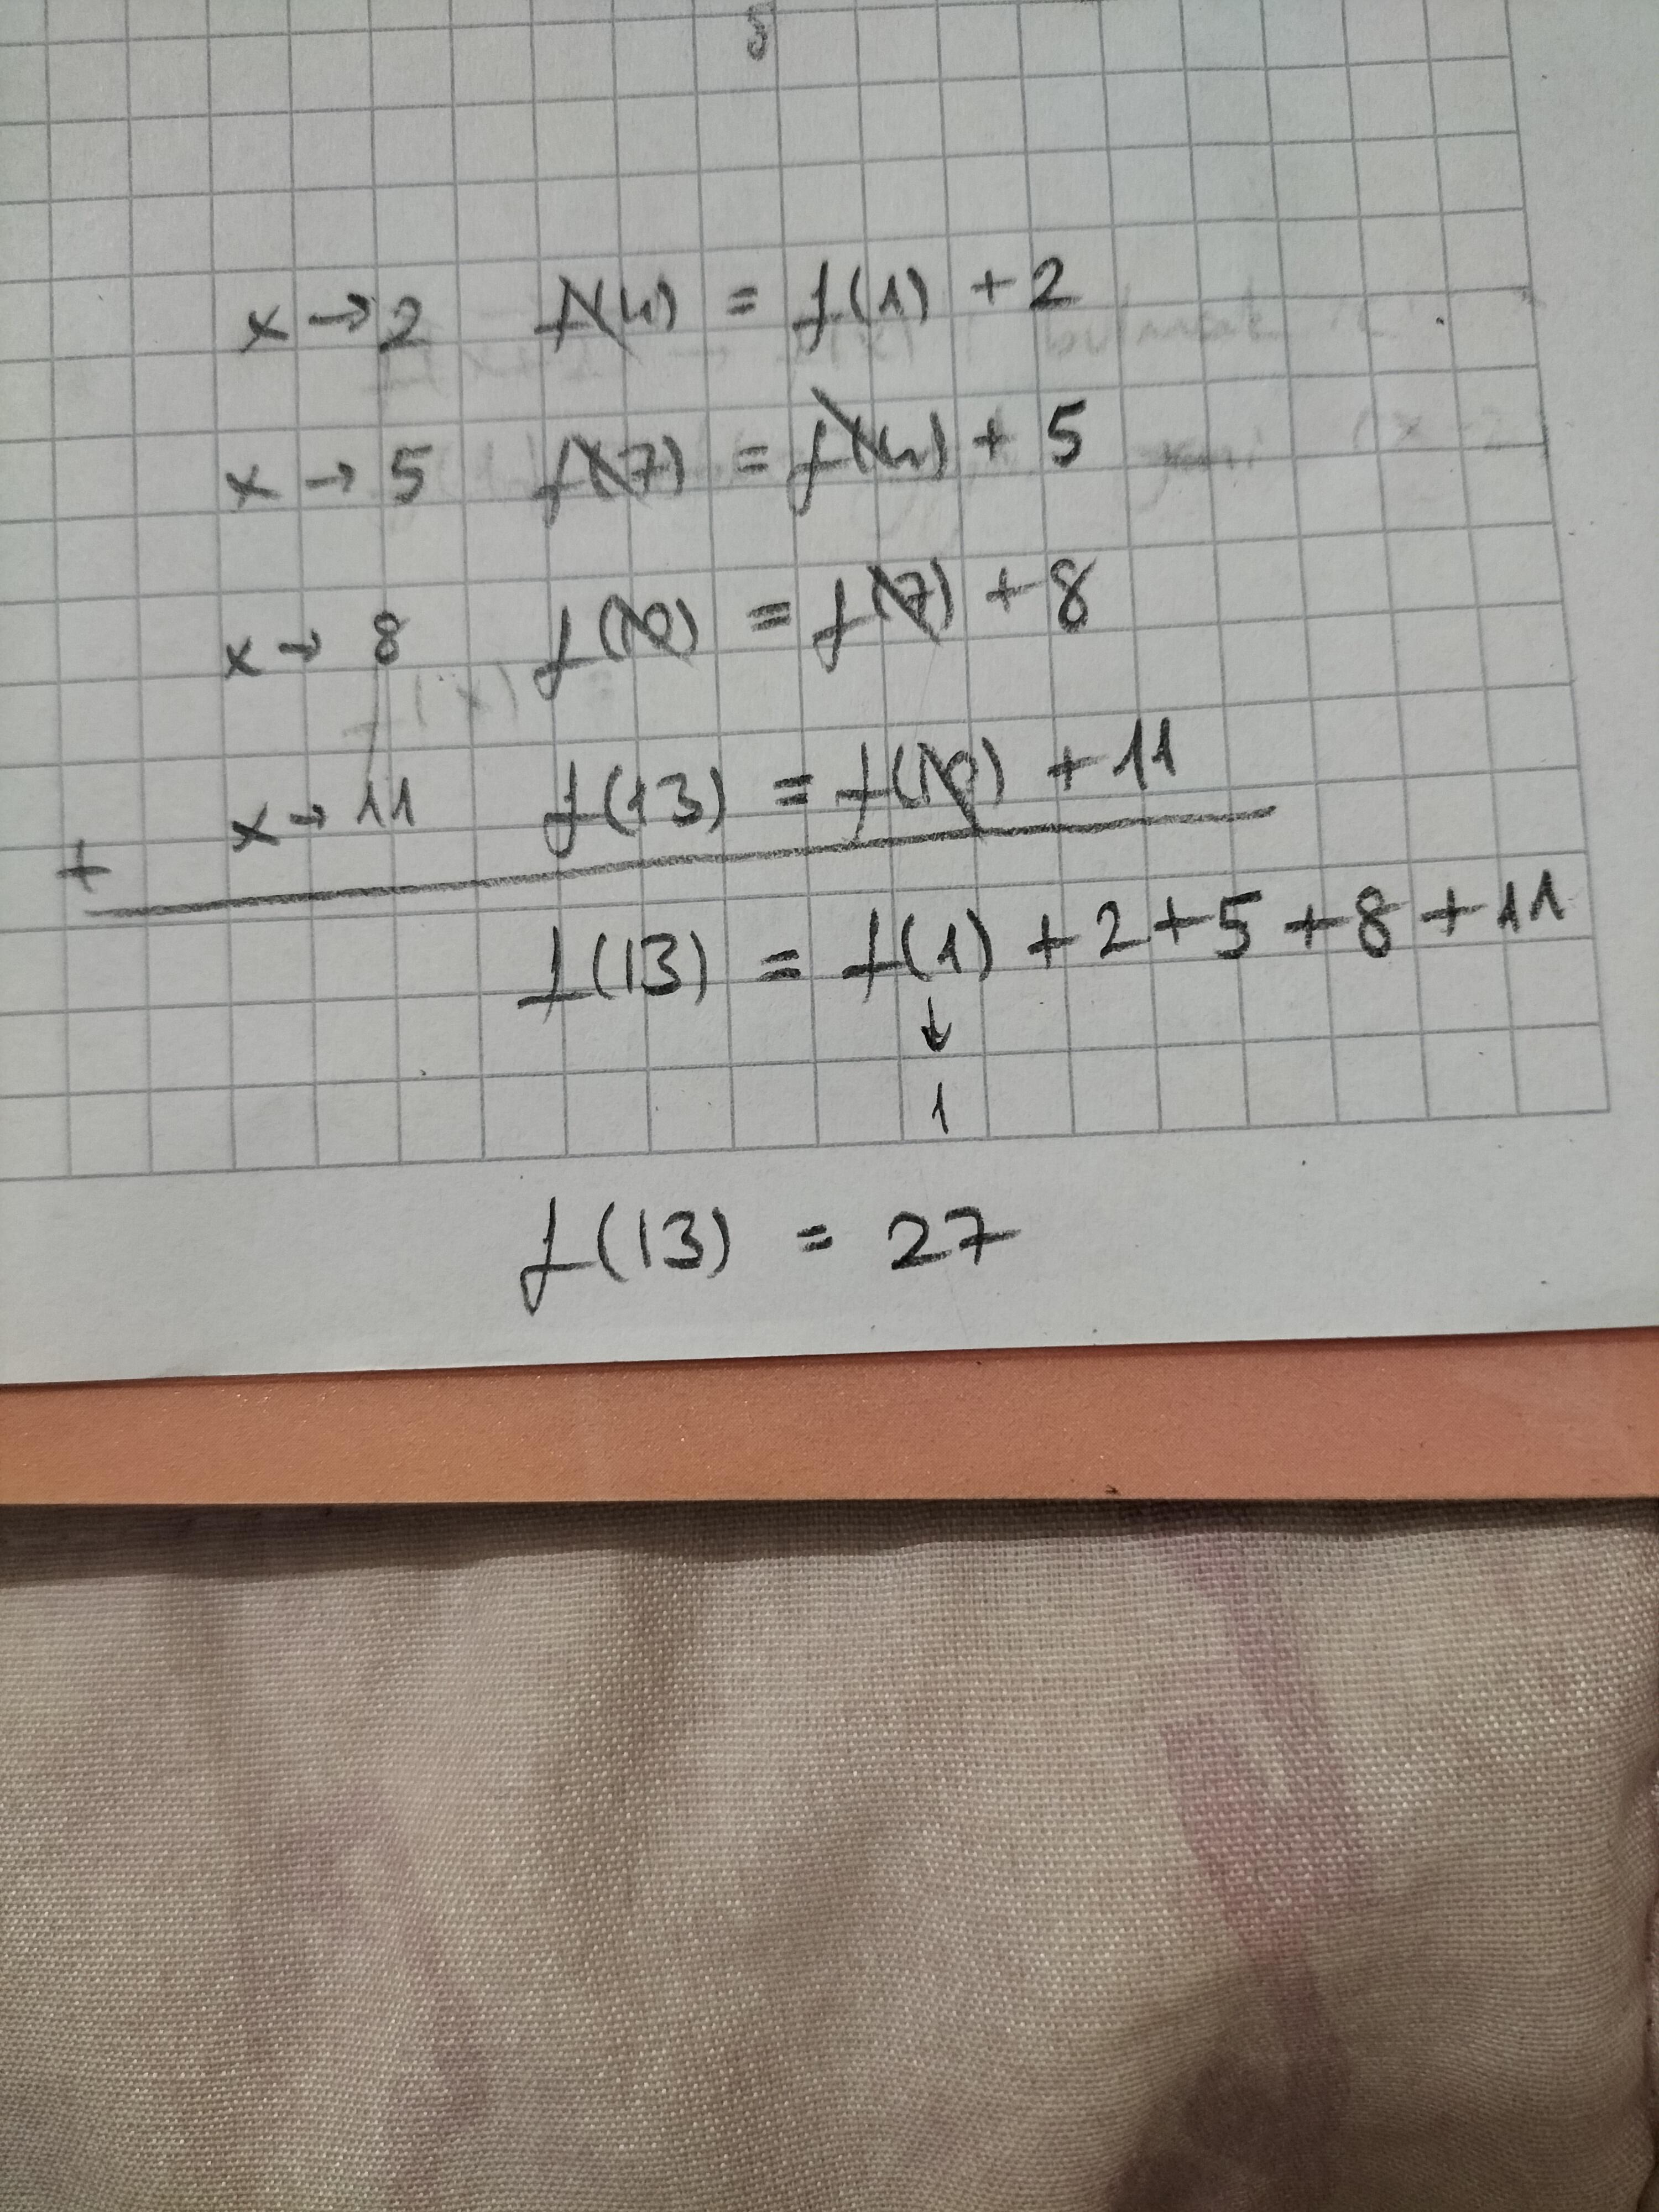 x → 2 f(4) = f(1) + 2
x → 5 f(7) = f(4) + 5
x → 8 f(10) = f(7) + 8
x → 11 f(13) = f(10) + 11
+
f(13) = f(1) + 2 + 5 + 8 + 11
↓
1
f(13) = 27